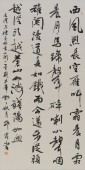 西風烈長空雁叫霜晨月霜
晨月馬蹄聲碎喇叭聲咽
雄關漫道真如鐵而今邁步從頭
越從頭越蒼山如海殘陽如血